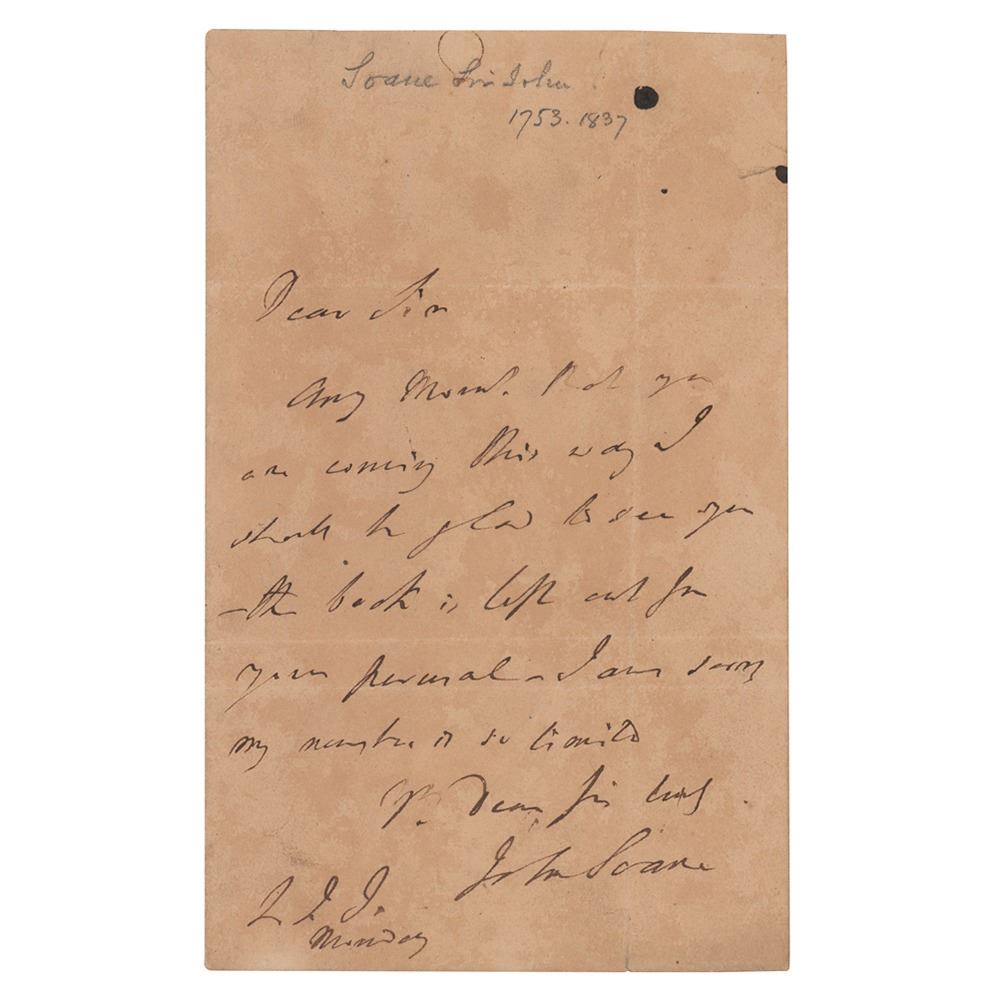 Soane Sir John
1753.1837
Dear Sir
Any Morn.g that you
are coming this way I
shall be glad to see you
– the book is left out for
your perusal – I am sorry
my number is so limited
Yrs. Dear Sir truly
John Soane
L I F.
Monday